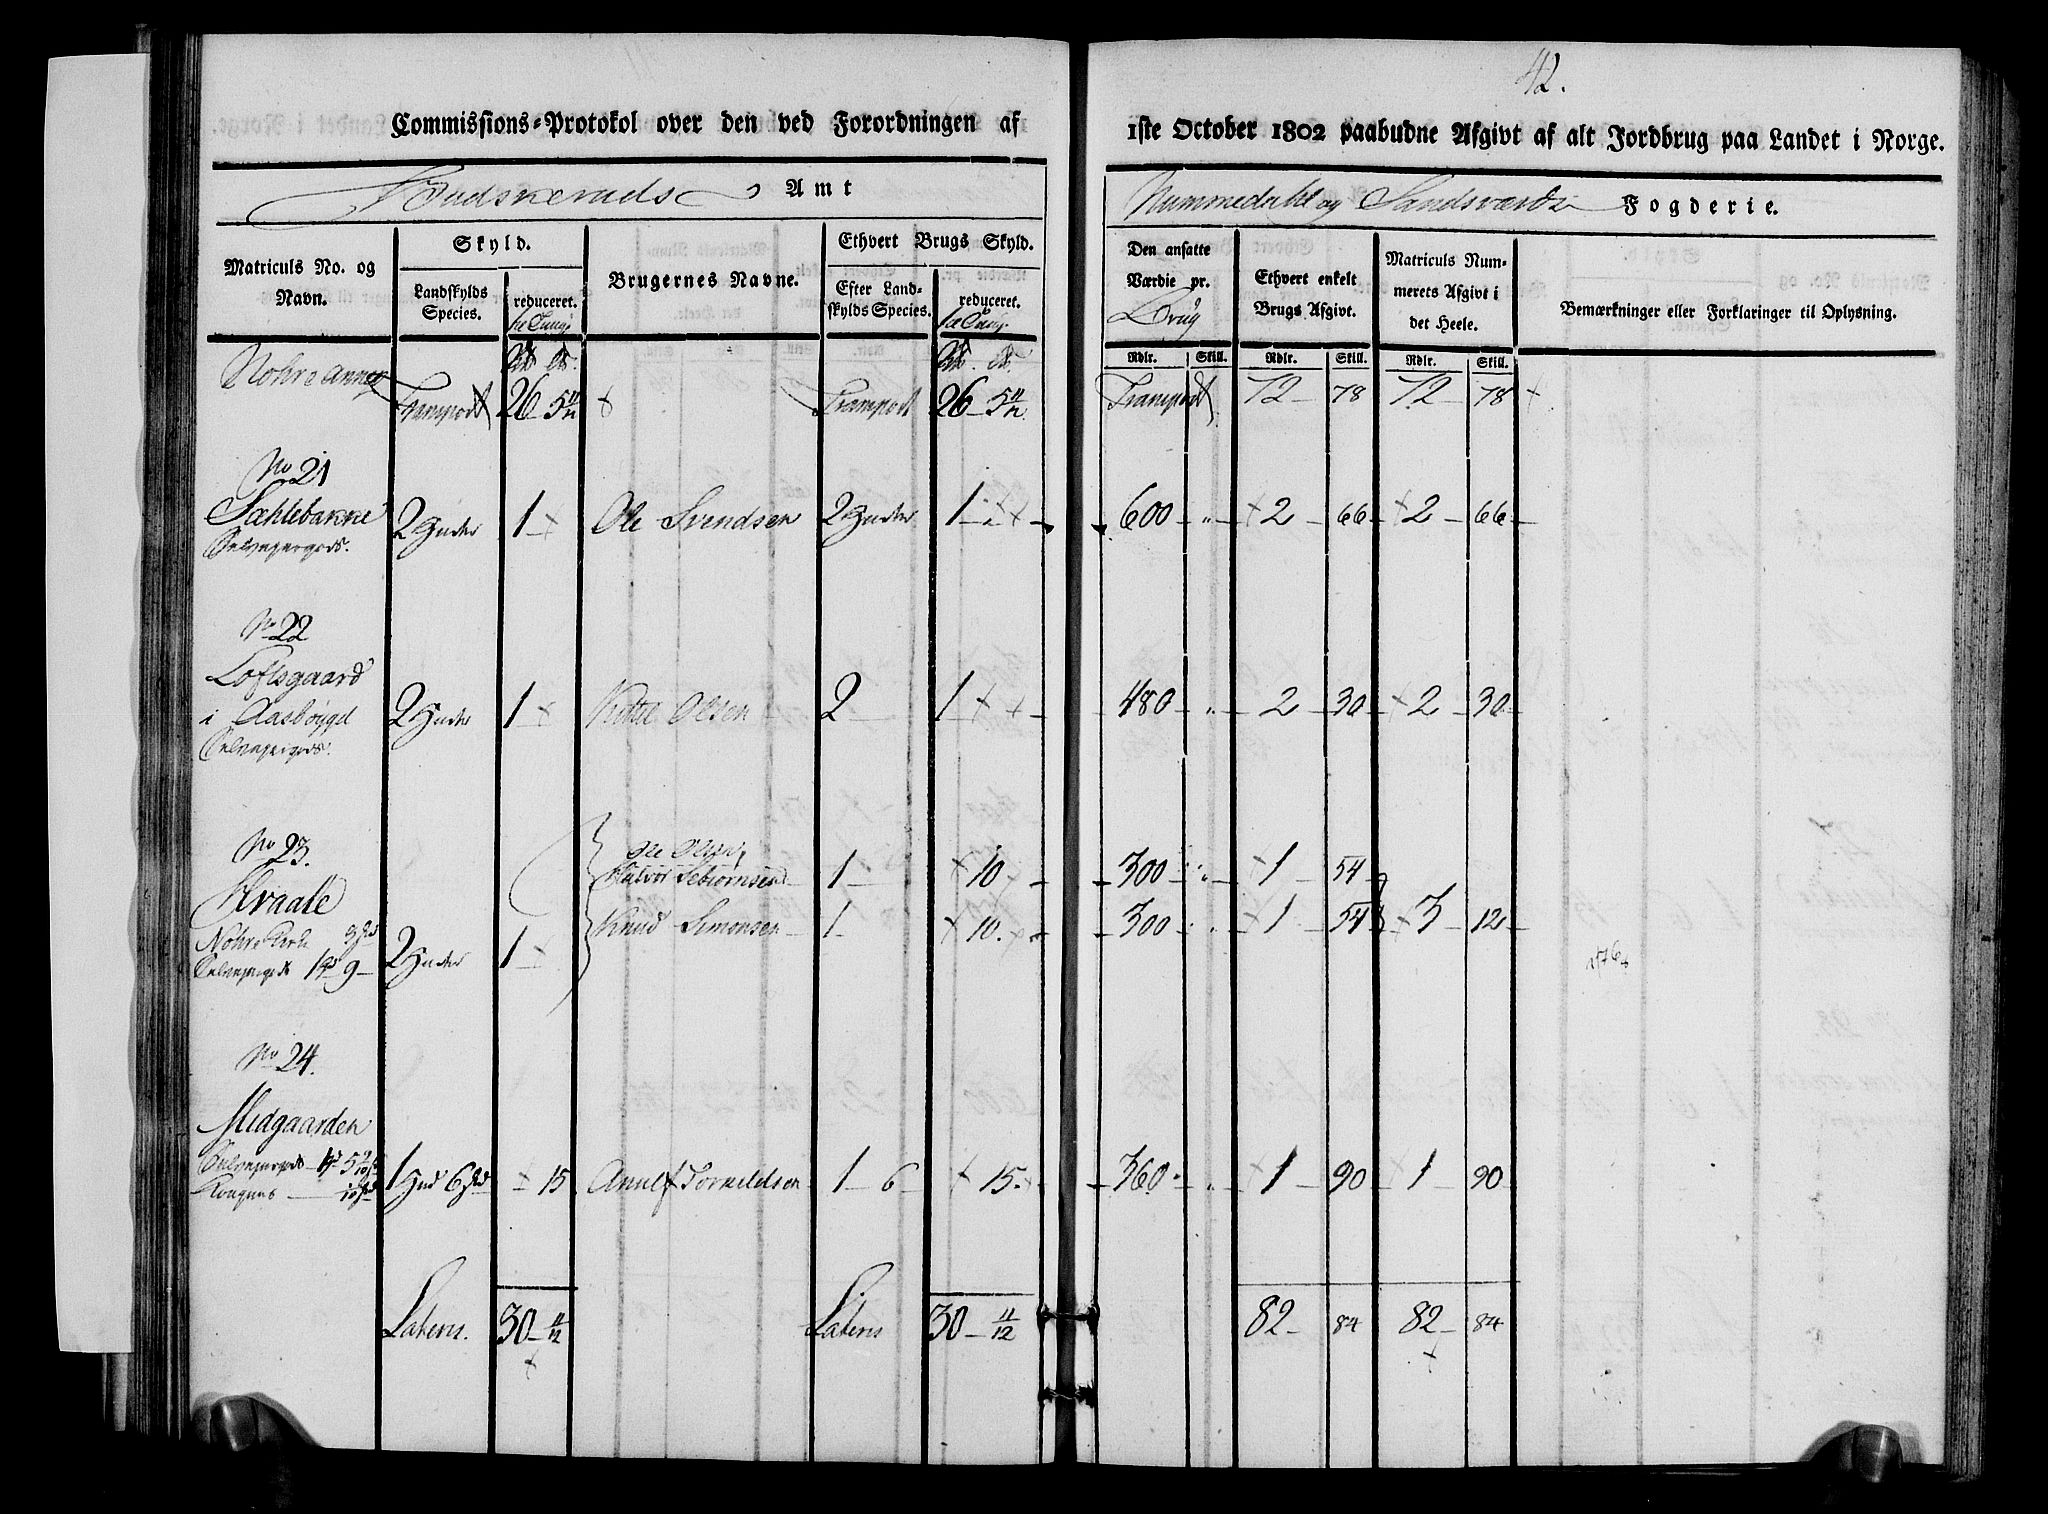 42.
Commissions-Protokol over den ved Forordningen af 1ste October 1802 paabudne Afgivt af alt Jordbrug paa Landet i Norge.
Budskeruds Amt Nummedahl og Sandsværds Fogderie.
Matriculs No. og Navn. Skyld. Brugernes Navne. Ethvert Brugs Skyld. Den ansatte Værdie pr. Brug Ethvert enkelt Brugs Afgivt. Matriculs Nummerets Afgivt i det Heele. Bemærkninger eller Forklaringer til Oplysning.
Landskylds Species. reduceret. Efter Landskylds Species. reduceret.
Rdlr. Skill. Rdlr. Skill. Rdlr. Skill.
Nohre Annex
Transport 26 5 11/12 Transport 26 5 11/12 Transport 72 78 72 78
No 21
Sæhlebakke 2 Huder 1 Ole Svendsen 2 Huder 1 600 2 66 2 66
Selvejergods.
No 22
Loftsgaard
i Aasbøygd 2 Huder 1 Kittel Olsen 2 1 480 2 30 2 30
Selvejergods.
No 23.
Ole Olsen,
Halvor Tebiørnsen 1 10 300 1 54
Hvaale
Knud Simonsen 1 10. 300 1 54 3 12
Nohre Kirke 3
Selvejergods 1 9 2 Huder 1
No 24.
Midgaarden
Selvejergods 1 5 9/10
Kongens 1/10 1 Hud 6 15 Anulf Torkeldsen 1 6 15. 360 1 90 1 90
Lateris. 30 11/12 Lateris 30 11/12 82 84 82 84